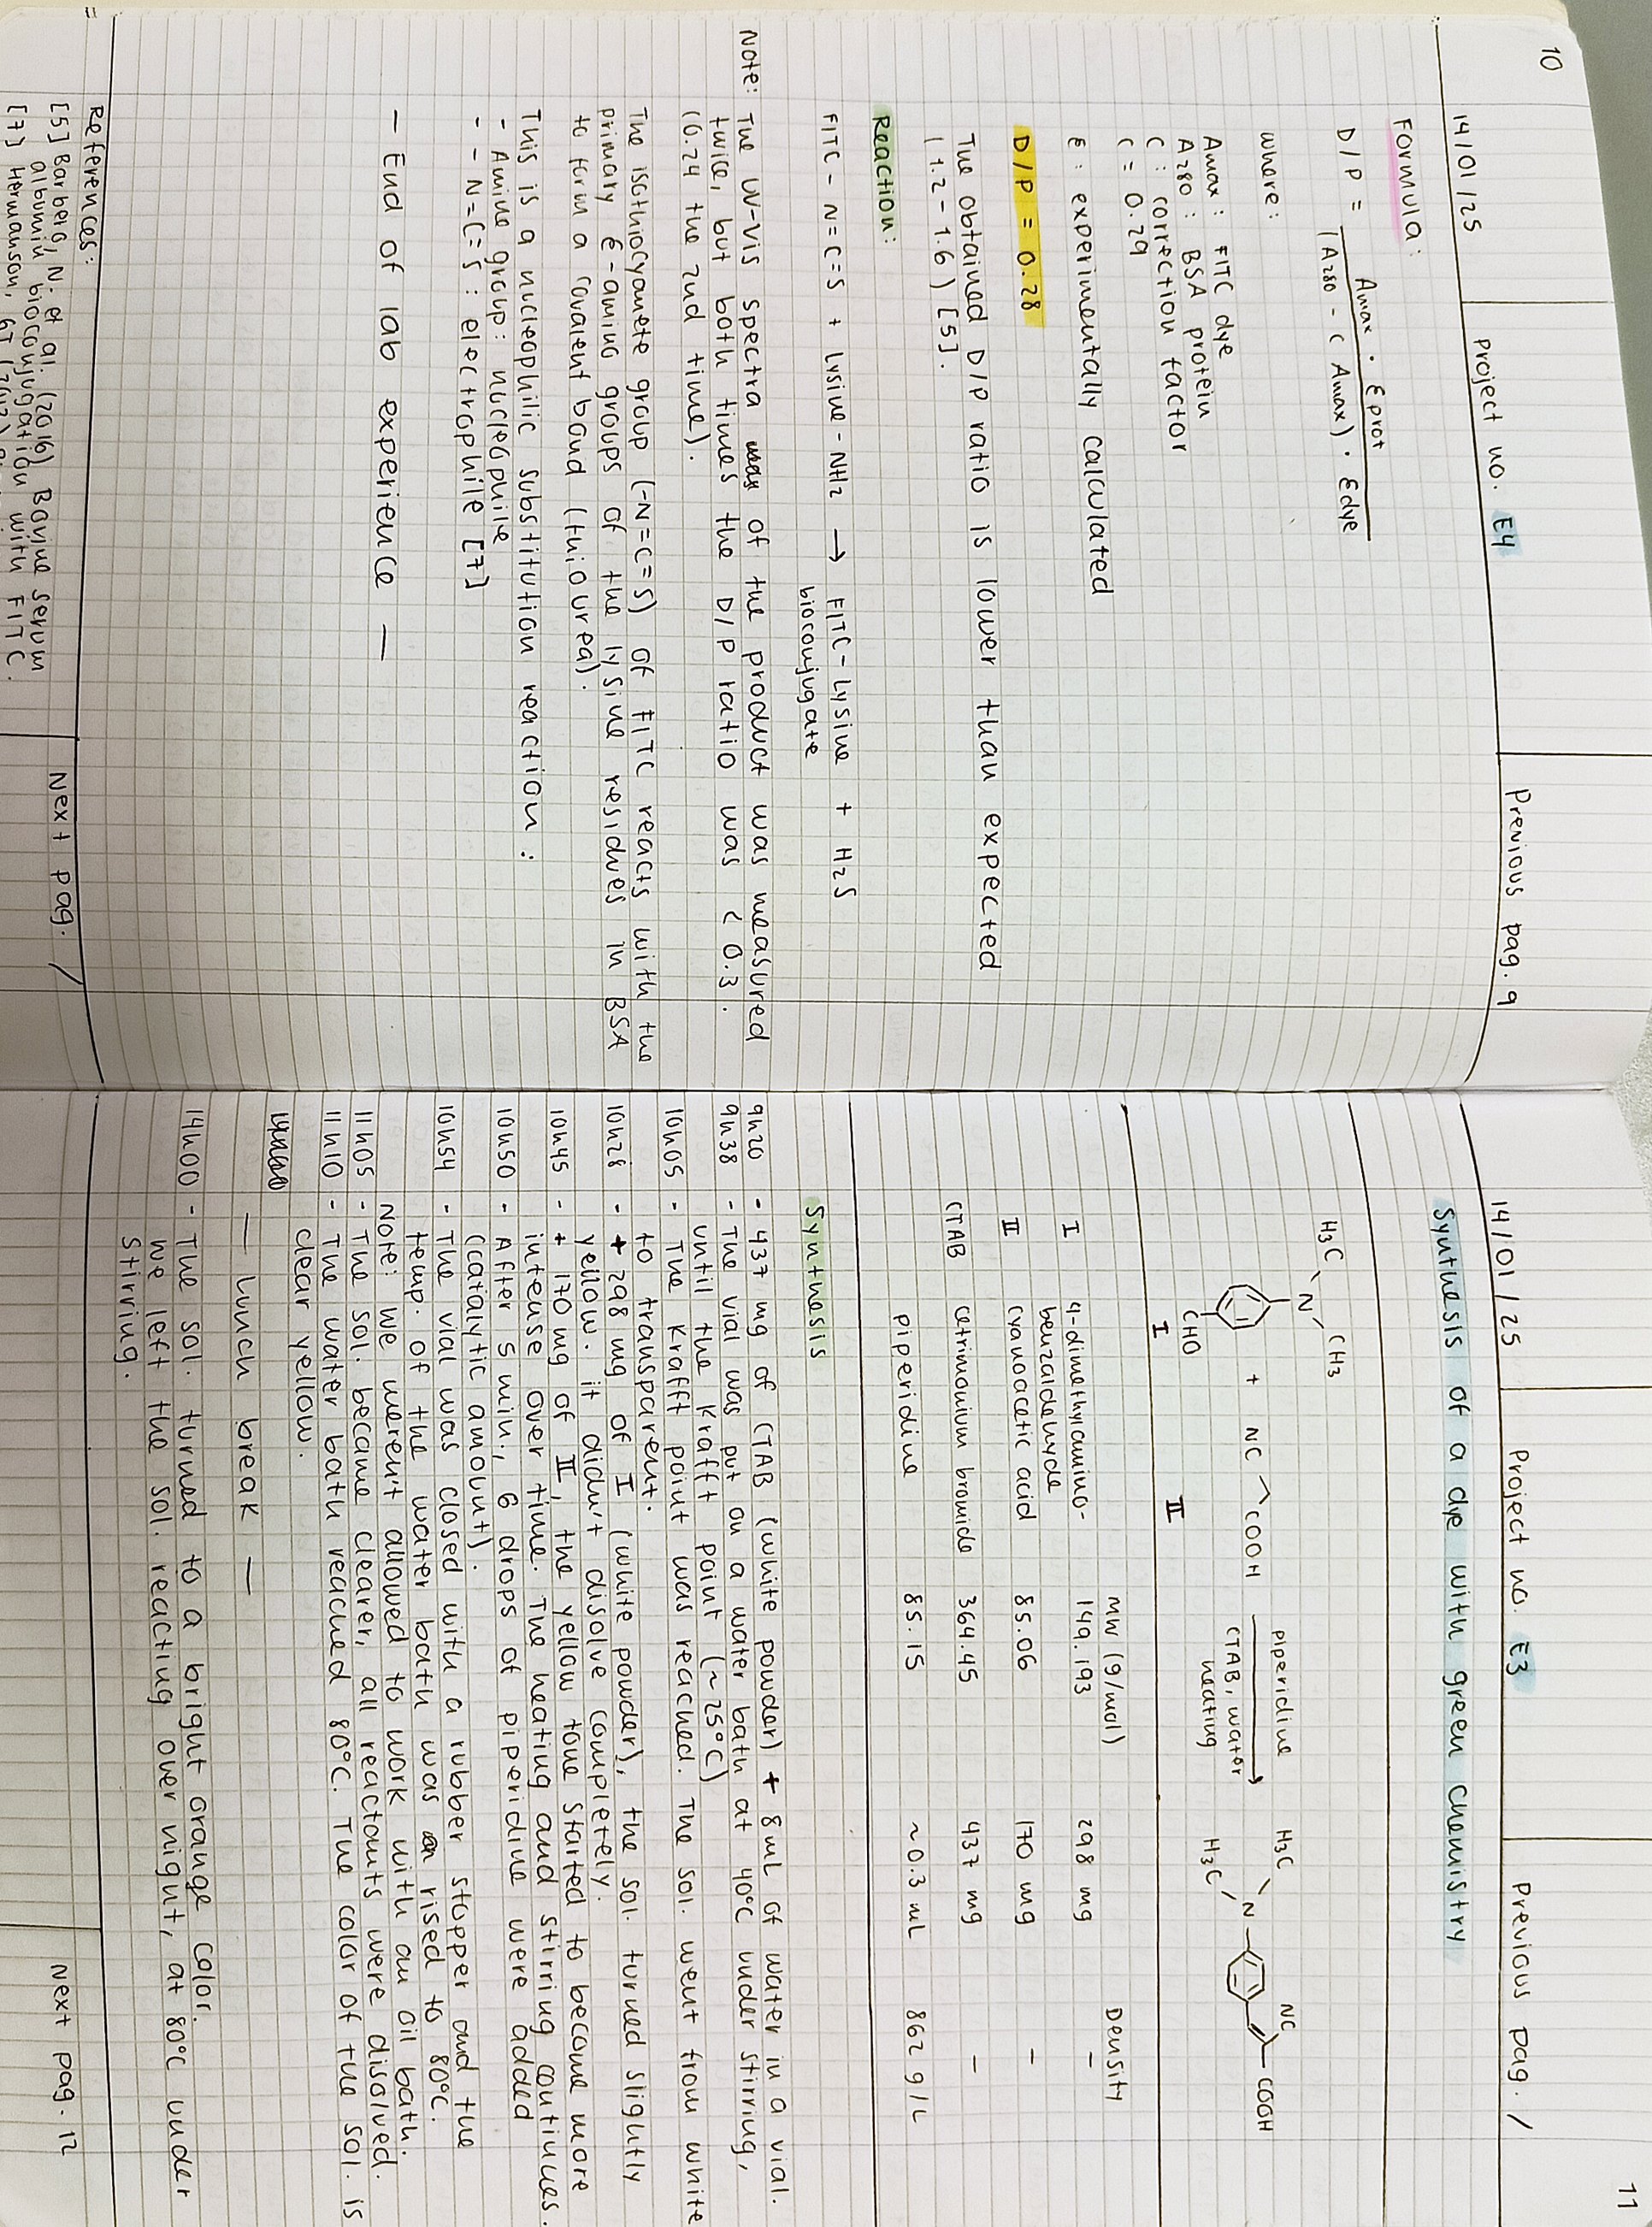 10
14/01/25
Project no. E4
Previous pag. 9
Formula:
D/P = Amax · εprot
(A280 - C Amax) · εdye
where:
Amax: FITC dye
A280: BSA protein
C: correction factor
C = 0.29
ε: experimentally calculated
D/P = 0.28
The obtained D/P ratio is lower than expected
(1.2-1.6) [5].
Reaction:
FITC-N=C=S + Lysine-NH2 → FITC-Lysine + H2S
bioconjugate
Note: The UV-vis spectra of the product was measured
twice, but both times the D/P ratio was < 0.3.
(0.24 the 2nd time).
The isothiocyanate group (-N=C=S) of FITC reacts with the
primary ε-amino groups of the lysine residues in BSA
to form a covalent bond (thiourea).
This is a nucleophilic substitution reaction:
- Amine group: nucleophile
- -N=C=S: electrophile [7]
— End of lab experience —
References:
[5] Barbero, N. et al. (2016) Bovine serum
albumin bioconjugation with FITC.
[7] Hermanson, GT
Next pag. /
11
14/01/25
Project no. E3
Previous pag. /
Synthesis of a dye with green chemistry
H3C
N
CH3
CHO
I
+
NC
COOH
II
piperidine
CTAB, water
heating
H3C
H3C
N
NC
COOH
MW (g/mol)
Density
I 4-dimethylamino-
benzaldehyde 149.193 298 mg –
II cyanoacetic acid 85.06 170 mg –
CTAB cetrimonium bromide 364.45 437 mg –
piperidine 85.15 ~0.3 mL 862 g/L
Synthesis
9h20 - 437 mg of CTAB (white powder) + 8 mL of water in a vial.
9h38 - The vial was put on a water bath at 40°C under stirring,
until the Krafft point (~25°C)
10h05 - The Krafft point was reached. The sol. went from white
to transparent.
10h28 - + 298 mg of I (white powder), the sol. turned slightly
yellow. it didn't disolve completely.
10h45 - + 170 mg of II, the yellow tone started to become more
intense over time. The heating and stirring continues.
10h50 - After 5 min, 6 drops of piperidine were added
(catalytic amount).
10h54 - The vial was closed with a rubber stopper and the
temp. of the water bath was rised to 80°C.
Note: We weren't allowed to work with an oil bath.
11h05 - The sol. became clearer, all reactants were disolved.
11h10 - The water bath reached 80°C. The color of the sol. is
clear yellow.
— Lunch break —
14h00 - The sol. turned to a bright orange color.
We left the sol. reacting over night, at 80°C under
stirring.
Next pag. 12